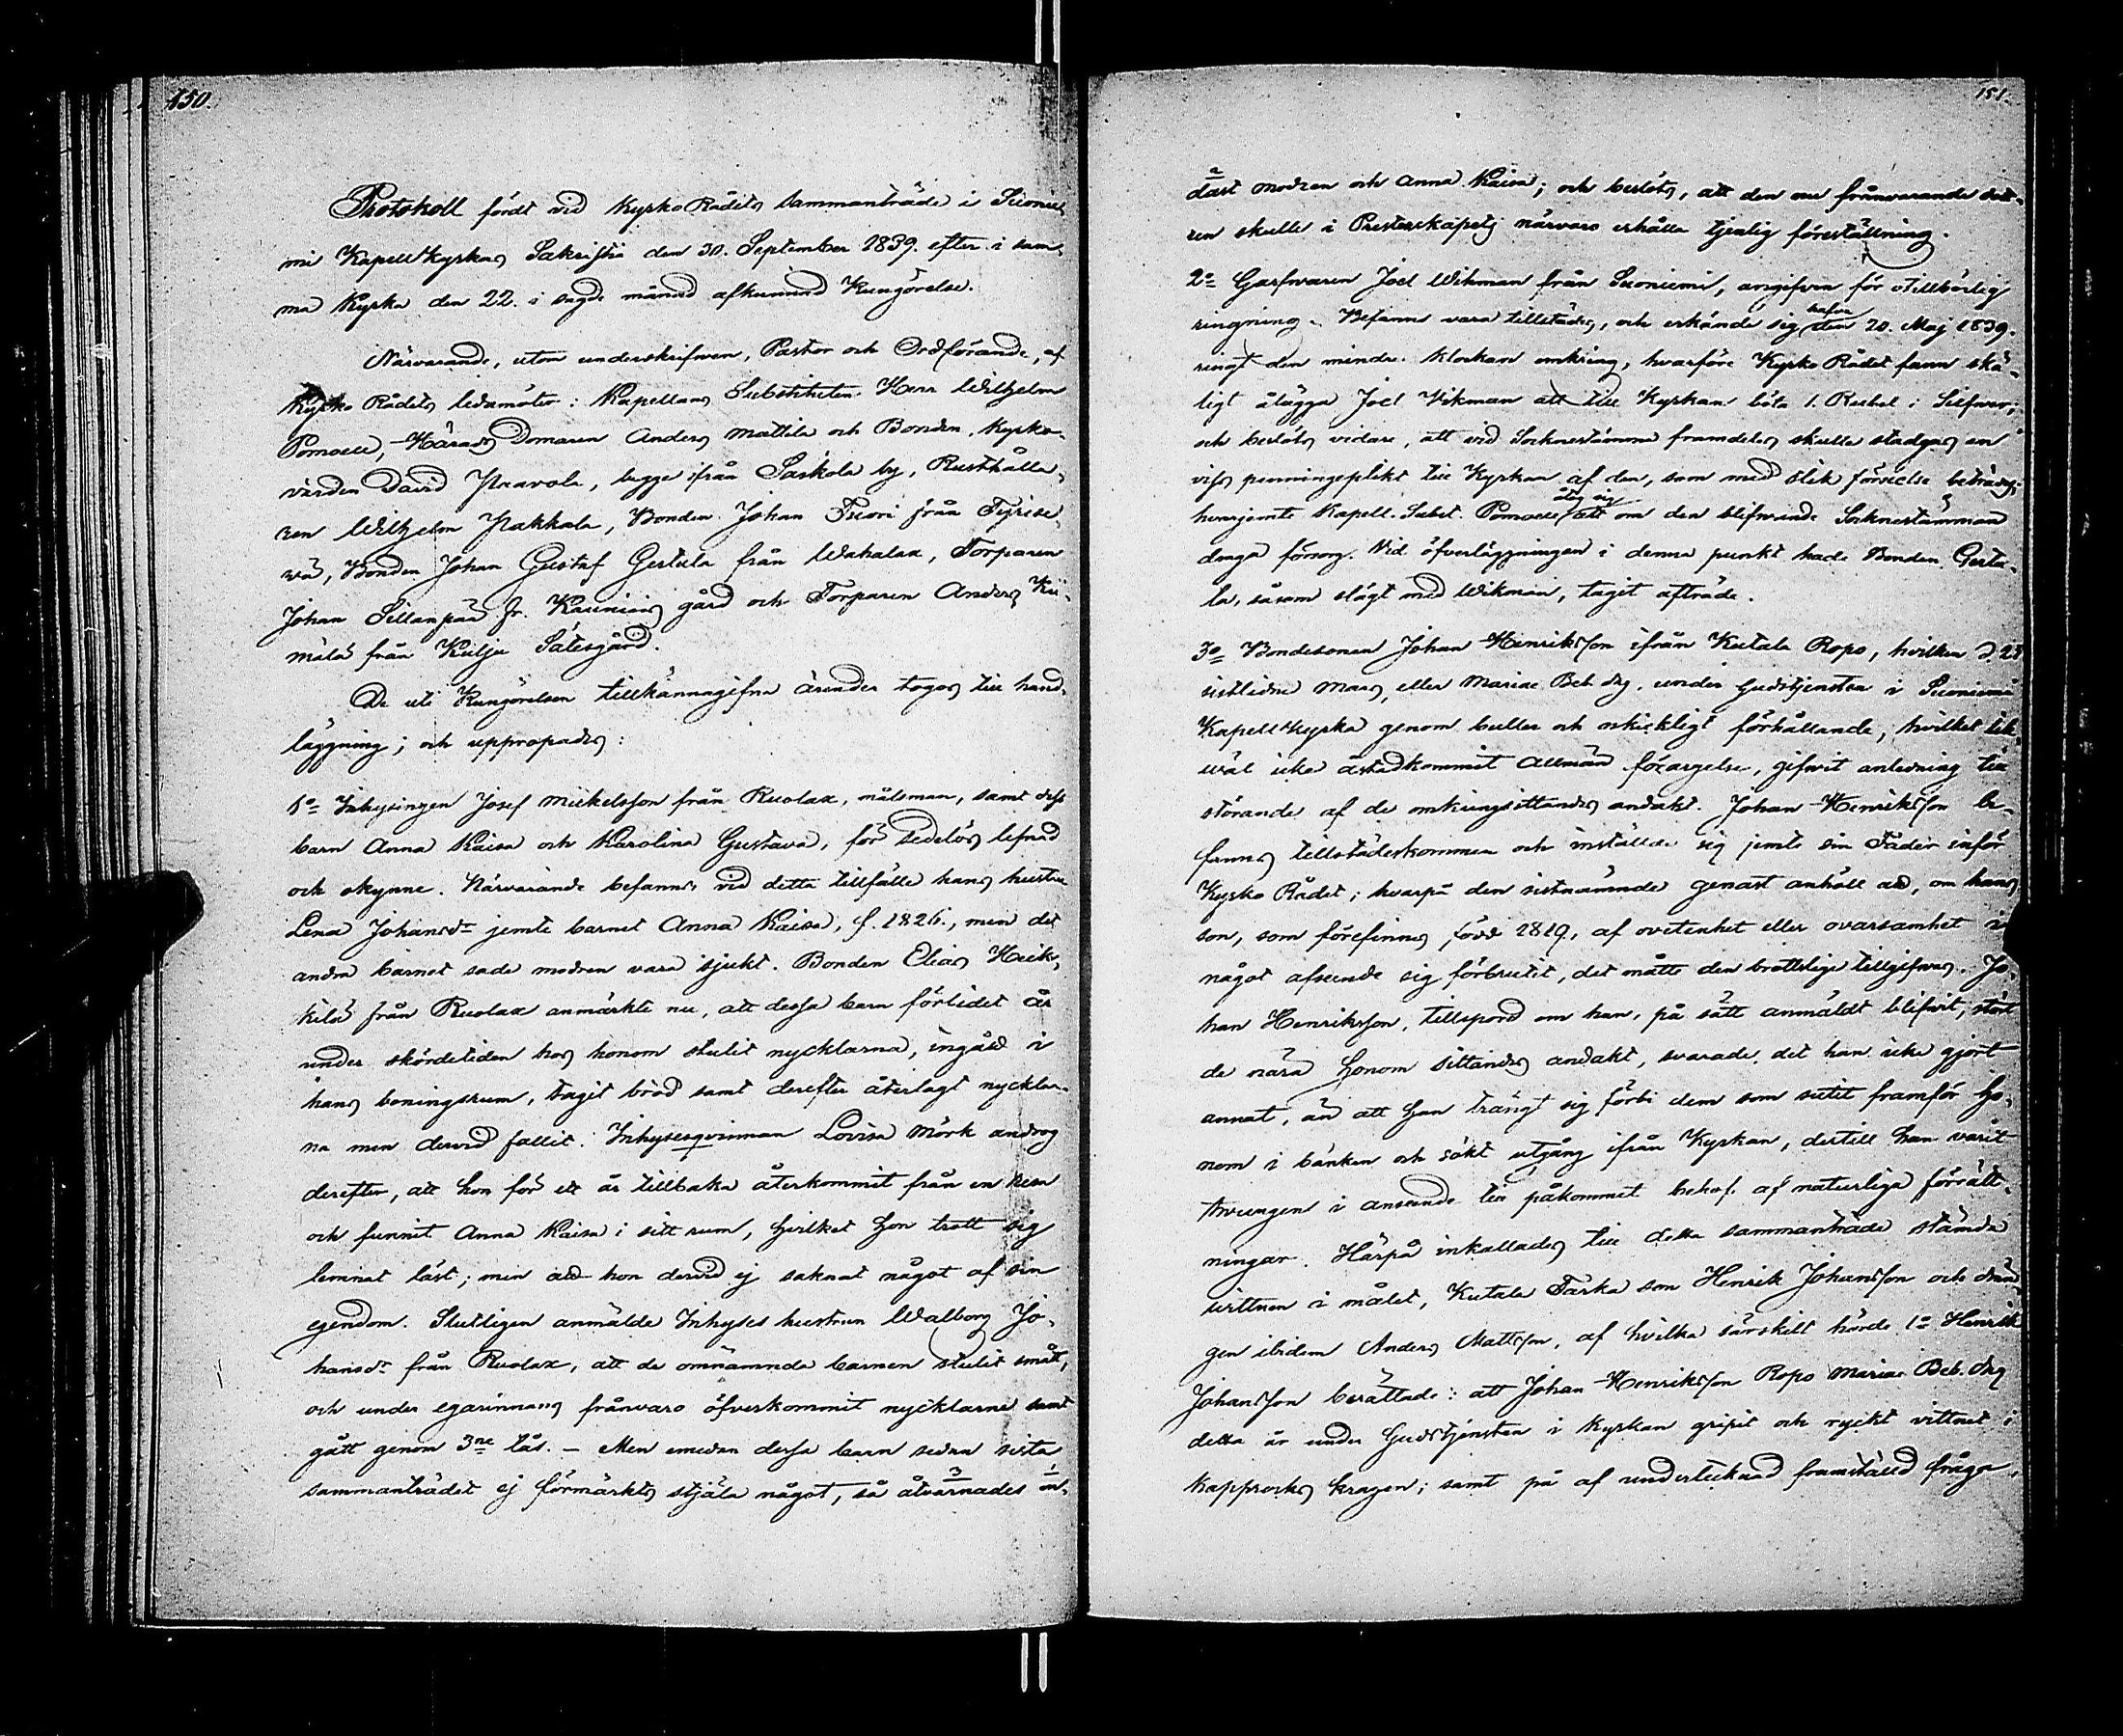 150.
Protokoll fördt vid Kyrko Rådets Sammanträde i Suonie-
mi Kapell Kyrkas Sakristia den 30. September 1839. efter i sam-
ma Kyrka den 22. i sagde månad afkunnad Kungörelse.
Närvarande, utom underskrifwen, Pastor och Ordförande, af
Kyrko Rådets ledamöter: Kapellans Substituten Herr Wilhelm
Pomoell, Härads Domaren Anders Mattila och Bonden, Kyrko-
värden David Paavola, begge ifrån Sarkola by, Rusthålla-
ren Wilhelm Pakkala, Bonden Johan Tuori från Tyrise-
vä, Bonden Johan Gustaf Gestula från Wahalax, Torparen
Johan Sillanpää fr. Kauniais gård och Torparen Anders Kii-
mälä från Kulju Säterigård.
De uti Kungörelsen tillkännagifna ärender togos till hand-
läggning; och uppropades:
1o Inhysingen Josef Mickelsson från Ruolax, målsman, samt dess
barn Anna Kaisa och Karolina Gustava, för sedelös lefnad
och okynne. Närvarande befanns vid detta tillfälle hans hustru
Lena Johansdr jemte barnet Anna Kaisa, f. 1826., men det
andra barnet sade modren vara sjukt. Bonden Elias Heik-
kilä från Ruolax anmärkte nu, att dessa barn förlidet år
under skördetiden hos honom stulit nycklarna, ingått i
hans boningsrum, tagit bröd samt derefter återlagt nycklar-
na men dervid fallit. Inhysesqvinnan Lovisa Mörk androg
derefter, att hon för ett år tillbaka återkommit från en resa
och funnit Anna Kaisa i sitt rum, hvilket hon trott sig
lemnat låst; men att hon dervid ej saknat något af sin
egendom. Slutligen anmälde Inhyses hustrun Walborg Jo-
hansdr från Ruolax, att de omnämnda barnen stulit smått,
och under egarinnans frånvaro öfverkommit nycklarne samt
gått genom 3ne lås. – Men emedan dessa barn sedan sista
sammanträdet ej förmärkts stjäla något, så åtvarnades en-
151.
dast modren och Anna Kaisa; och beslöts, att den nu frånvarande dott-
ren skulle i Presterskapets närvaro erhålla tjenlig föreställning.
2o Garfwaren Joel Wikman från Suoniemi, angifven för otillbörlig
ringning. Befanns vara tillstädes, och erkände sig hafva den 20. Maj 1839.
ringt den mindre klockan omkring, hvarföre Kyrko Rådet fann skä-
ligt ålägga Joel Vikman att till Kyrkan böta 1. Rubel i Silfwer;
och beslöts vidare, att vid Socknestämma framdeles skulle stadgas en
viss penningeplikt till Kyrkan af den, som med slik förseelse beträdes;
hvarjemte Kapell. Subst. Pomoell åtog sig att om den blifwande Socknestämman
draga försorg. Vid öfverläggningen i denna punkt hade Bonden Gestu-
la, såsom slägt med Wikman, tagit afträde.
3o Bondesonen Johan Henriksson ifrån Kutala Ropo, hvilken d. 25
sistlidne Mars, eller Mariae Beb. dag, under Gudstjensten i Suoniemi
Kapell Kyrka genom buller och oskickligt förhållande, hvilket lik-
wäl icke åstadkommit Allmän förargelse, gifwit anledning till
störande af de omkringsittandes andakt. Johan Henriksson be-
fanns tillstädeskommen och inställde sig jemte sin Fader inför
Kyrko Rådet; hvarpå den sistnämnde genast anhöll att, om hans
son, som förefinnes född 1819, af ovetenhet eller ovarsamhet i
något afseende sig förbrutit, det måtte den brottslige tillgifwas. Jo-
han Henriksson, tillspord om han, på sätt anmäldt blifwit, stört
de nära honom sittandes andakt, svarade, det han icke gjort
annat, än att han trängt sig förbi dem som sutit framför ho-
nom i bänken och sökt utgång ifrån Kyrkan, dertill han varit
tvungen i anseende till påkommet behof af naturliga förrätt-
ningar. Härpå inkallades till detta sammanträde stämda
wittnen i målet, Kutala Tarka son Henrik Johansson och drän-
gen ibidem Anders Mattsson, af hvilka särskilt hörde 1o Henrik
Johansson berättade: att Johan Henriksson Ropo Mariae Beb. dag
detta år under Gudstjensten i Kyrkan gripit och ryckt vittnet i
Kapprocks kragen; samt på af undertecknad framställd fråga,